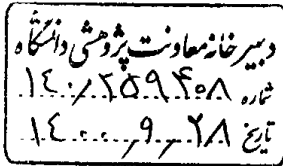 دبیرخانه معاونت پژوهشی دانشگاه
شماره ۱۴۰/۲۵۹۴۰۸
تاریخ ۱۴۰۰/۹/۲۸